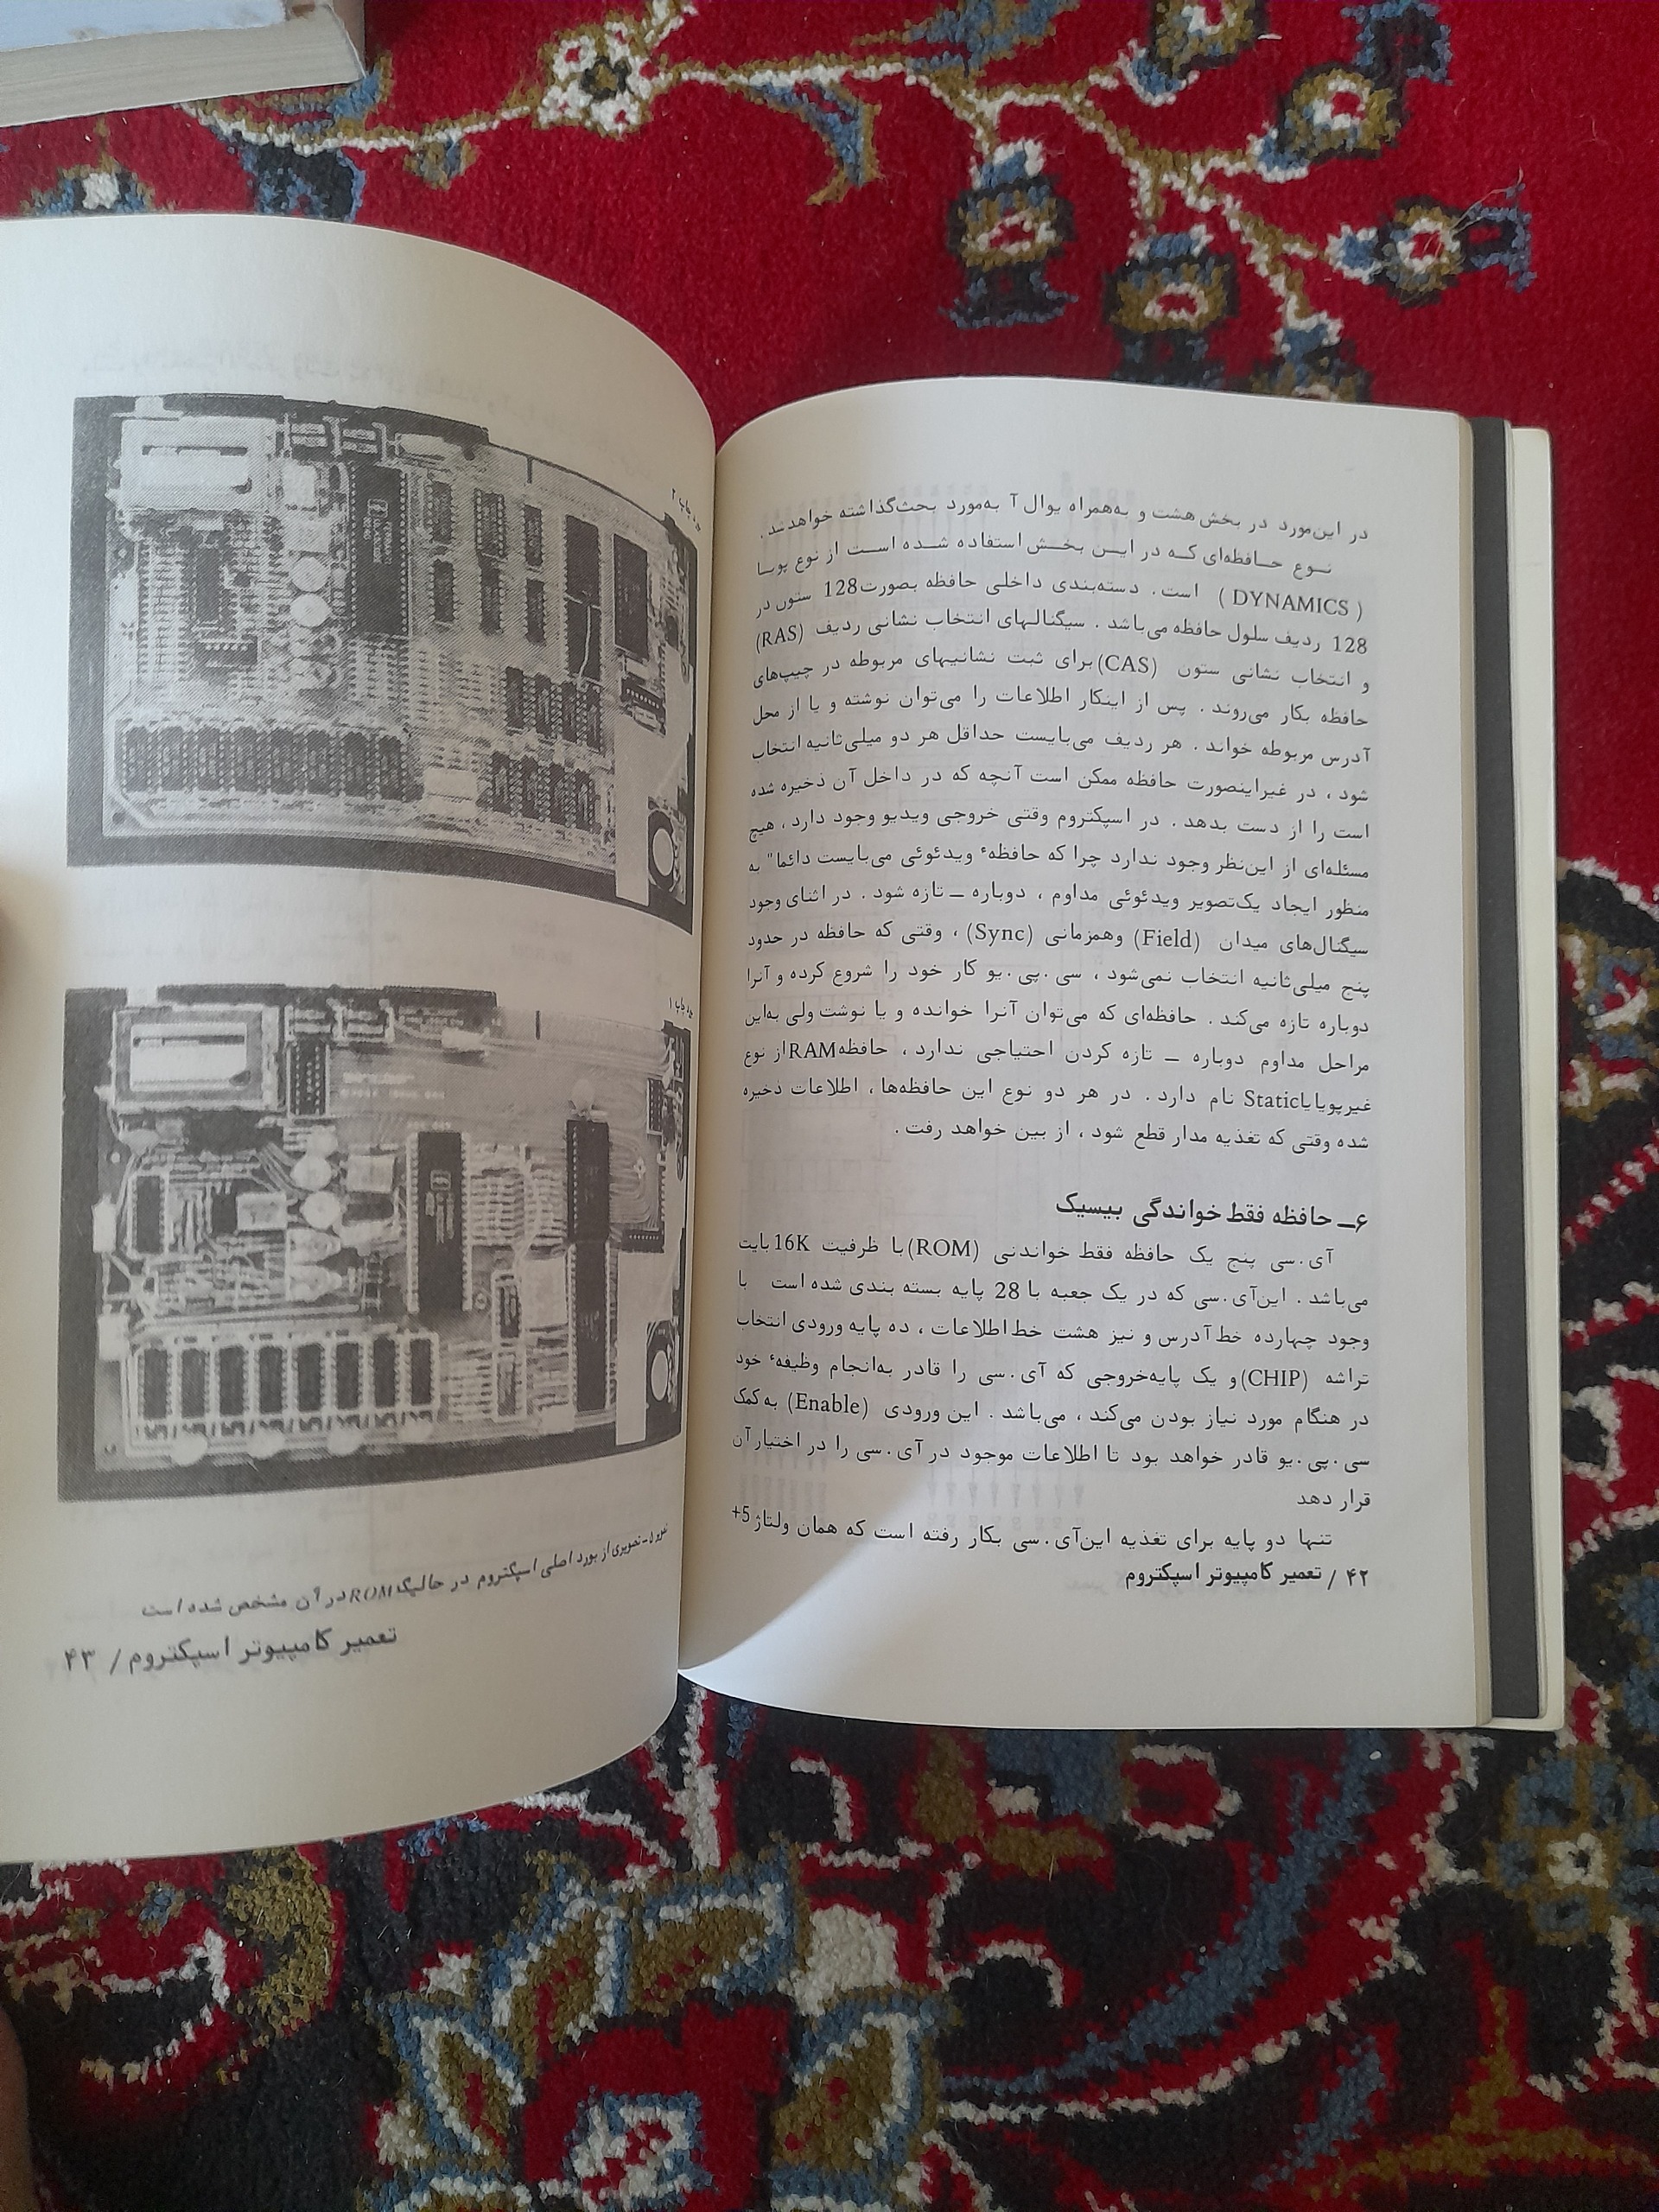 در این‌مورد در بخش هشت و به‌همراه یوال آ به‌مورد بحث‌گذاشته خواهدشد.
نوع حافظه‌ای که در این بخش استفاده شده است از نوع پویا
(DYNAMICS) است. دسته‌بندی داخلی حافظه بصورت 128 ستون در
128 ردیف سلول حافظه می‌باشد. سیگنالهای انتخاب نشانی ردیف (RAS)
و انتخاب نشانی ستون (CAS) برای ثبت نشانیهای مربوطه در چیپ‌های
حافظه بکار می‌روند. پس از اینکار اطلاعات را می‌توان نوشته و یا از محل
آدرس مربوطه خواند. هر ردیف می‌بایست حداقل هر دو میلی‌ثانیه انتخاب
شود، در غیراینصورت حافظه ممکن است آنچه که در داخل آن ذخیره شده
است را از دست بدهد. در اسپکتروم وقتی خروجی ویدیو وجود دارد، هیچ
مسئله‌ای از این‌نظر وجود ندارد چرا که حافظهٔ ویدئوئی می‌بایست دائما" به
منظور ایجاد یک‌تصویر ویدئوئی مداوم، دوباره ـ تازه شود. در اثنای وجود
سیگنال‌های میدان (Field) وهمزمانی (Sync)، وقتی که حافظه در حدود
پنج میلی‌ثانیه انتخاب نمی‌شود، سی.پی.یو کار خود را شروع کرده و آنرا
دوباره تازه می‌کند. حافظه‌ای که می‌توان آنرا خوانده و یا نوشت ولی به‌این
مراحل مداوم دوباره ـ تازه کردن احتیاجی ندارد، حافظه RAM از نوع
غیرپویا یا Static نام دارد. در هر دو نوع این حافظه‌ها، اطلاعات ذخیره
شده وقتی که تغذیه مدار قطع شود، از بین خواهد رفت.
۶ـ حافظه فقط خواندگی بیسیک
آی.سی پنج یک حافظه فقط خواندنی (ROM) با ظرفیت 16K بایت
می‌باشد. این‌آی.سی که در یک جعبه با 28 پایه بسته بندی شده است با
وجود چهارده خط آدرس و نیز هشت خط اطلاعات، ده پایه ورودی انتخاب
تراشه (CHIP) و یک پایه‌خروجی که آی.سی را قادر به‌انجام وظیفهٔ خود
در هنگام مورد نیاز بودن می‌کند، می‌باشد. این ورودی (Enable) به‌کمک
سی.پی.یو قادر خواهد بود تا اطلاعات موجود در آی.سی را در اختیار آن
قرار دهد
تنها دو پایه برای تغذیه این‌آی.سی بکار رفته است که همان ولتاژ 5+
۴۲ / تعمیر کامپیوتر اسپکتروم
چاپ ۲
چاپ ۱
تصویری از بورد اصلی اسپکتروم در حالیکه ROM در آن مشخص شده است
تعمیر کامپیوتر اسپکتروم / ۴۳